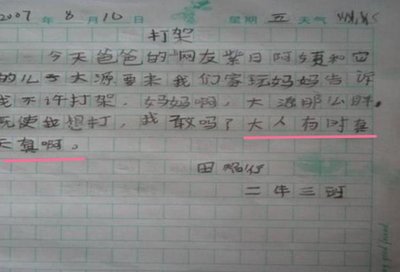 2007 年 8 月 10 日 星期 五 天气
打架
今天爸爸的网友紫日阿姨和它
的儿子大源要来我们家玩妈妈告诉
我不许打架，妈妈啊，大源那么胖，
既使我想打，我敢吗？大人有时真
天真啊。
田
二年三班